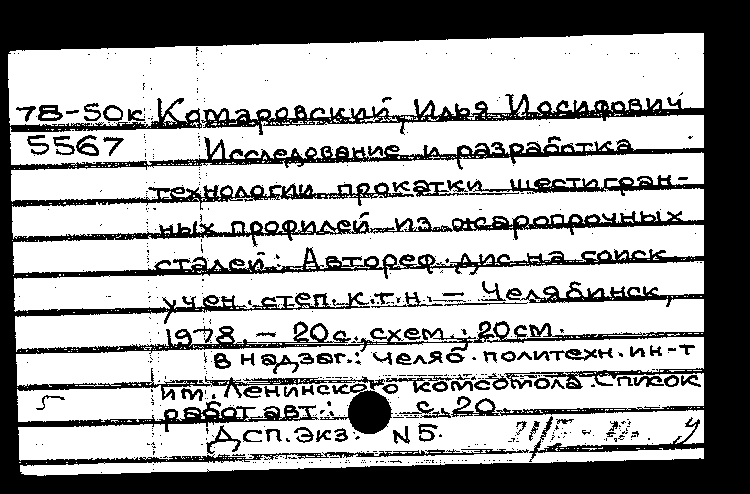 78-50к Комаровский, Илья Иосифович
5567 Исследование и разработка
технологии прокатки шестигран-
ных профилей из жаропрочных
сталей: Автореф. дис на соиск.
учен. степ. к.т.н. – Челябинск,
1978. – 20с., схем.; 20см.
В надзаг.: Челяб. политехн. ин-т
им. Ленинского комсомола. Список
работ авт.: с. 20.
Д,сп. Экз. N5.